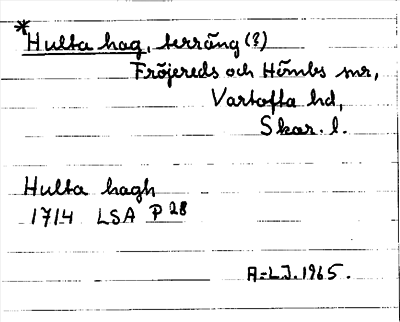 *Hulta hag, terräng (?)
Fröjereds och Hömbs snr,
Vartofta hd,
Skar. l.
Hulta hagh
1714 LSA P 28
A-LJ. 1965.